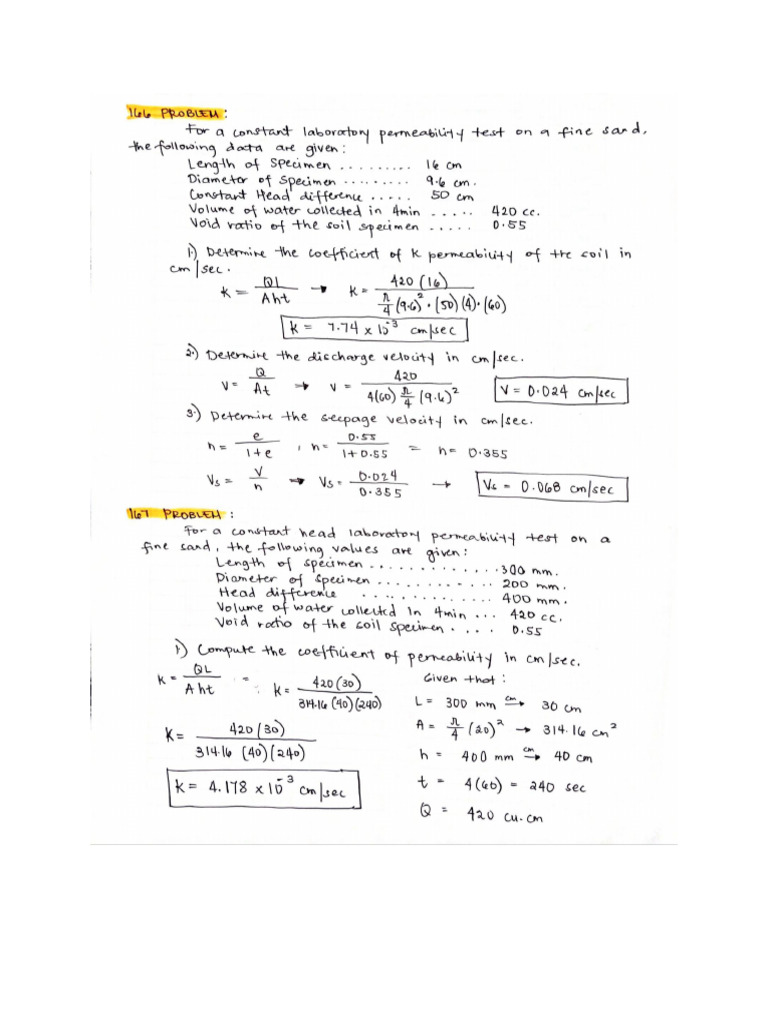 166 PROBLEM:
For a constant laboratory permeability test on a fine sand,
the following data are given:
Length of Specimen ......... 16 cm
Diameter of Specimen ......... 9.6 cm.
Constant Head difference ..... 50 cm
Volume of water collected in 4min ..... 420 cc.
Void ratio of the soil specimen ..... 0.55
1.) Determine the coefficient of k permeability of the soil in
cm/sec.
K = QL / Aht → K = 420 (16) / π/4 (9.6)² · (50) (4) · (60)
K = 7.74 x 10⁻³ cm/sec
2.) Determine the discharge velocity in cm/sec.
V = Q / At → V = 420 / 4(60) π/4 (9.6)² V = 0.024 cm/sec
3.) Determine the seepage velocity in cm/sec.
n = e / 1+e , n = 0.55 / 1+0.55 = n = 0.355
Vs = V / n → Vs = 0.024 / 0.355 → Vs = 0.068 cm/sec
167 PROBLEM:
For a constant head laboratory permeability test on a
fine sand, the following values are given:
Length of specimen .............300 mm.
Diameter of specimen ............ 200 mm.
Head difference ............. 400 mm.
Volume of water collected in 4min ... 420 cc.
Void ratio of the soil specimen .... 0.55
1.) Compute the coefficient of permeability in cm/sec.
K = QL / Aht = K = 420 (30) / 314.16 (40) (240)
K = 420 (30) / 314.16 (40) (240)
K = 4.178 x 10⁻³ cm/sec
Given that:
L = 300 mm cm→ 30 cm
A = π/4 (20)² → 314.16 cm²
h = 400 mm cm→ 40 cm
t = 4(60) = 240 sec
Q = 420 cu.cm